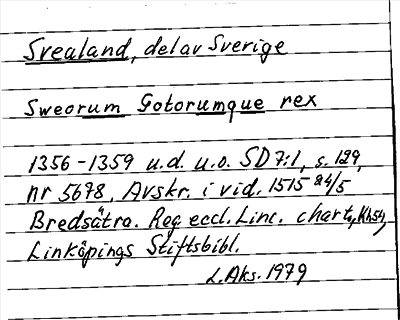 Svealand, del av Sverige
Sweorum Gotorumque rex
1356-1359 u.d. u.o. SD 7:1, s. 129,
nr 5678. Avskr. i vid. 1515 24/5
Bredsätra. Reg. eccl. Linc. chart,
Linköpings Stiftsbibl.
L. Aks. 1979